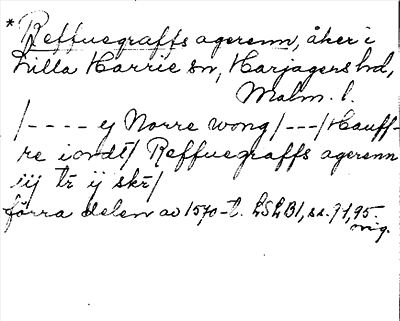 *Reffuegraffs agerenn, åker i
Lilla Harrie sn, Harjagers hd,
Malm. l.
/---- ej Norre wong/---/Hauff-
re iordt/ Reffuegraffs agerenn
iij tr ij skr/
förra delen av 1570-t. LSLB1, ss. 91, 95.
orig.